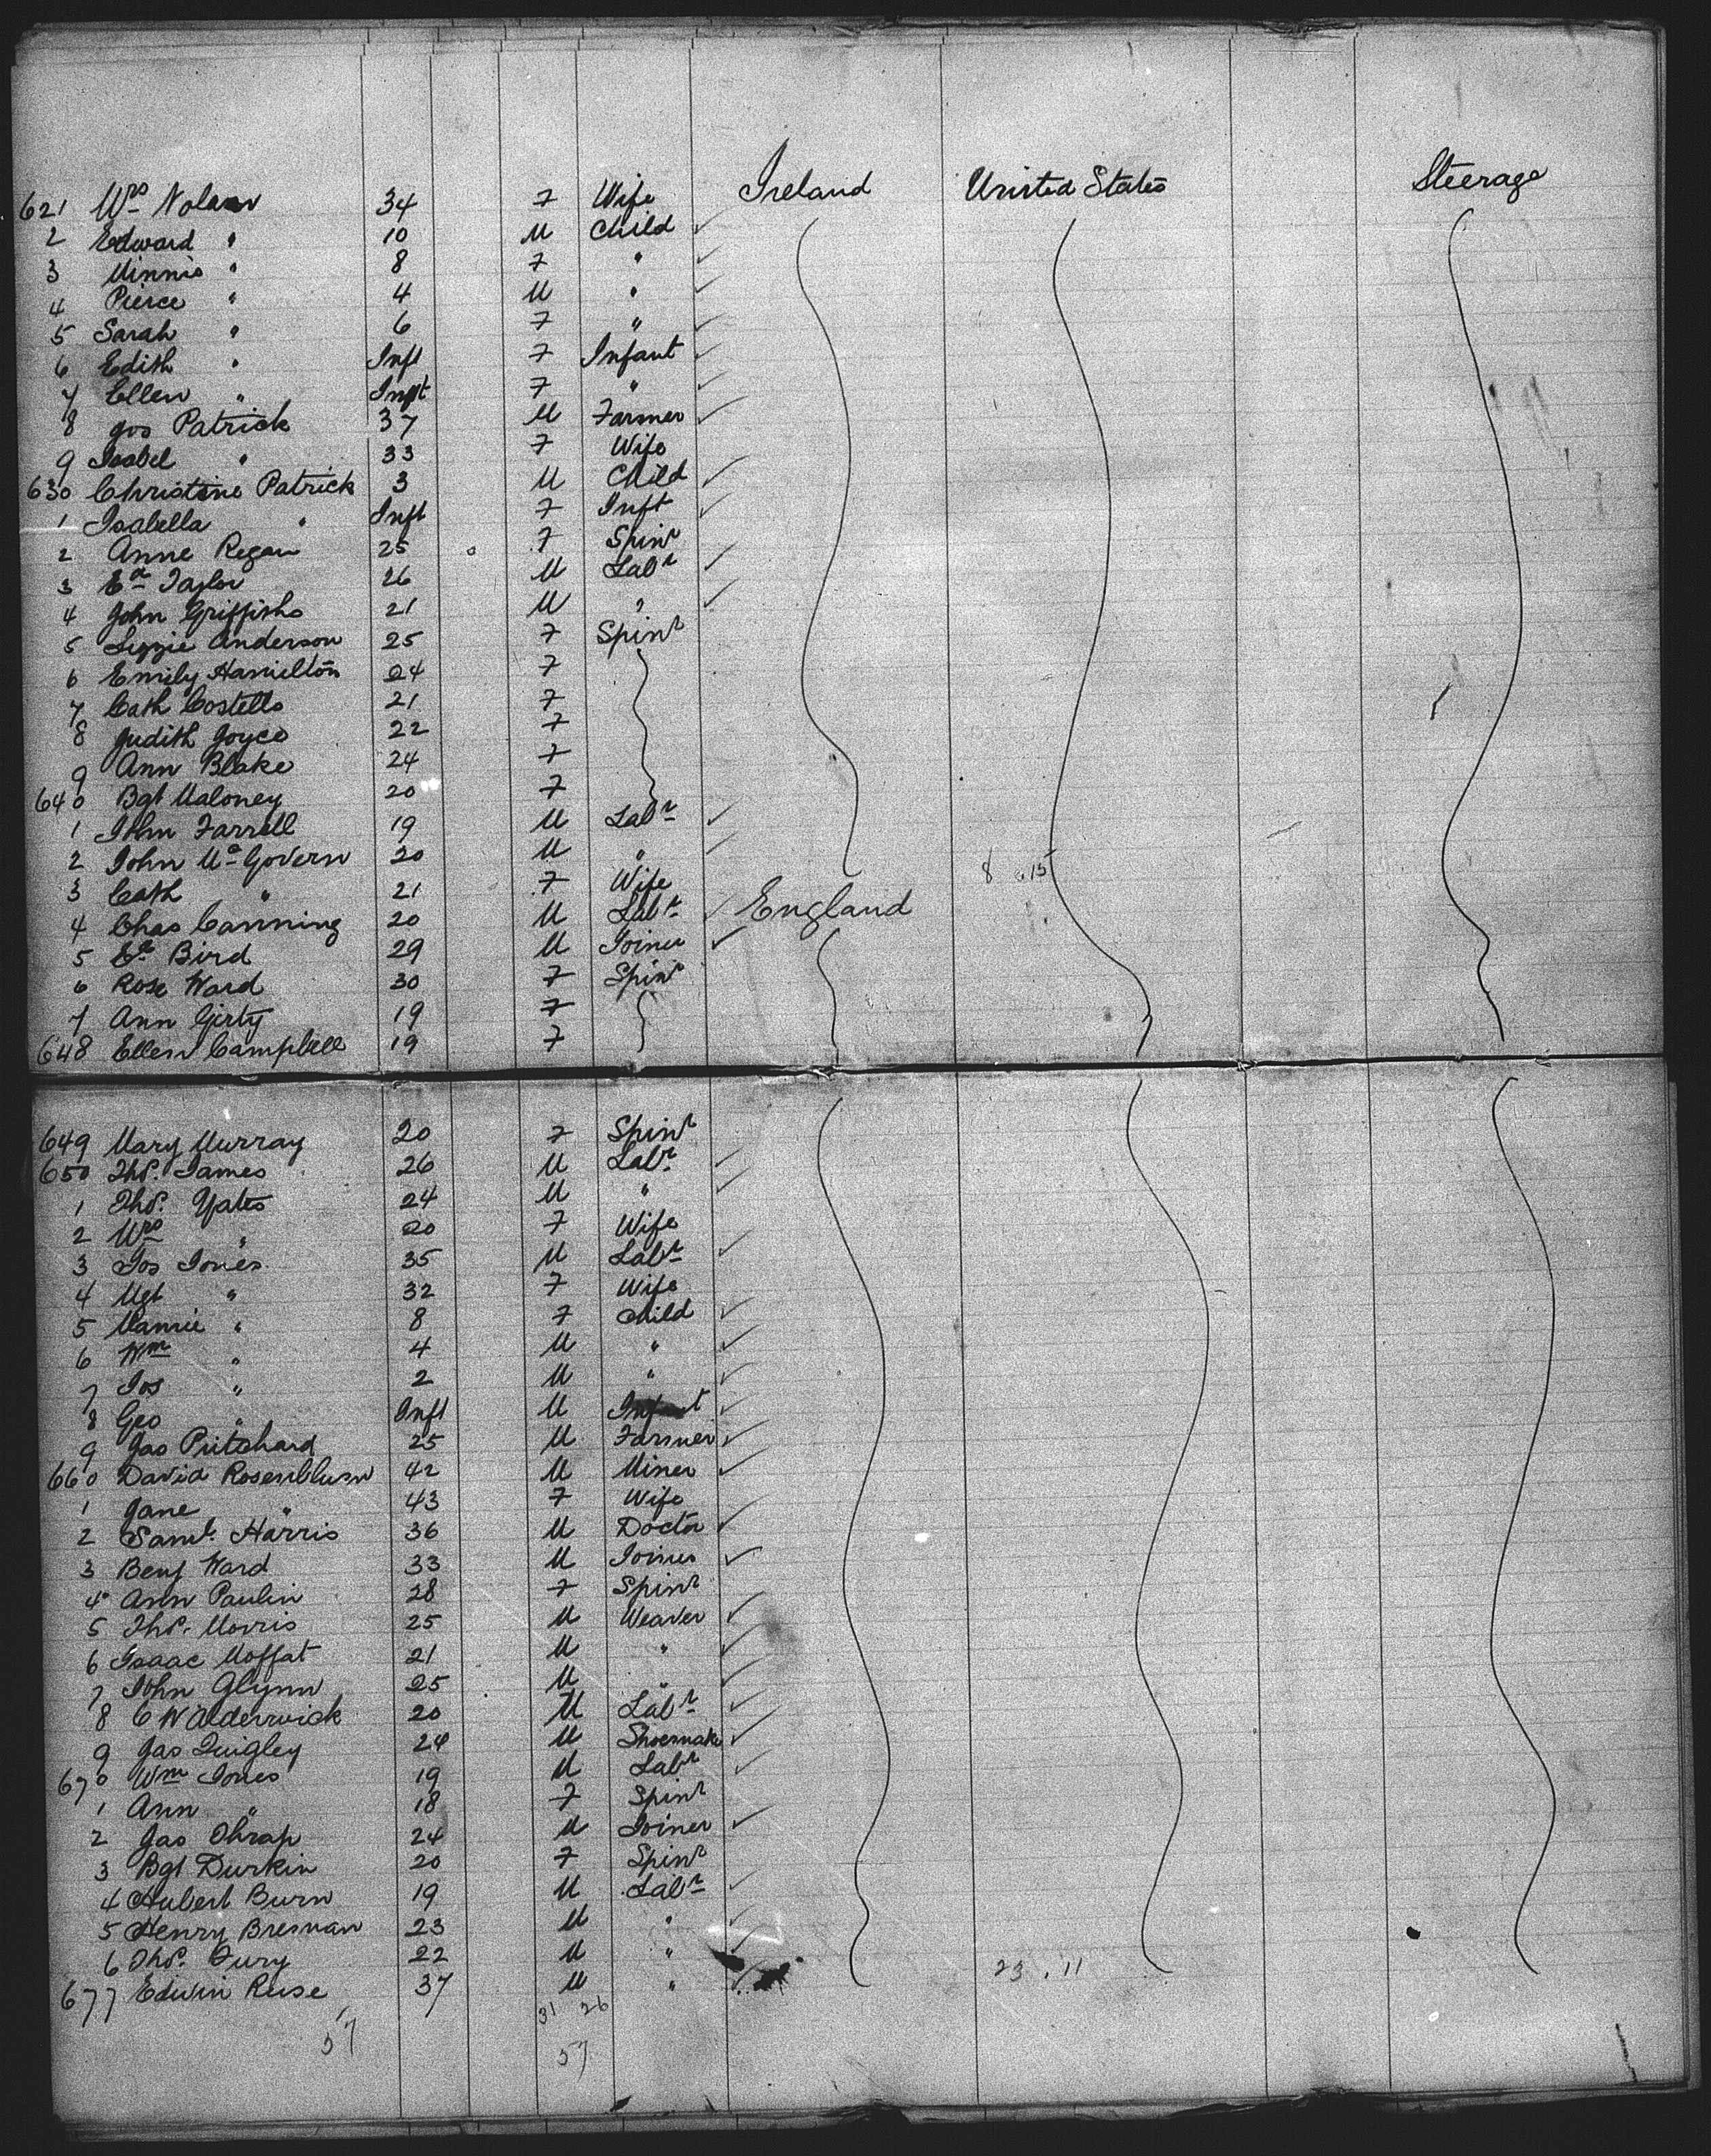 Ireland United States Steerage
621 Mrs Nolan 34 F Wife
2 Edward " 10 M Child ✓
3 Minnie " 8 F " ✓
4 Pierce " 4 M " ✓
5 Sarah " 6 F " ✓
6 Edith " Inft F Infant ✓
7 Ellen " Inft F " ✓
8 Jos Patrick 37 M Farmer ✓
9 Isabel " 33 F Wife
630 Christine Patrick 3 M Child ✓
1 Isabella " Inft F Inft ✓
2 Anne Regan 25 F Spinr
3 Ed Taylor 26 M Labr ✓
4 John Griffiths 21 M " ✓
5 Lizzie Anderson 25 F Spinr
6 Emily Hamilton 24 F
7 Cath Costello 21 F
8 Judith Joyce 22 F
9 Ann Blake 24 F
640 Bgt Maloney 20 F
1 John Farrell 19 M Labr ✓
2 John McGovern 20 M " ✓
3 Cath " 21 F Wife
4 Chas Canning 20 M Labr ✓ England
5 Ed Bird 29 M Joiner ✓
6 Rose Ward 30 F Spinr
7 Ann Gerty 19 F
648 Ellen Campbell 19 F
649 Mary Murray 20 F Spinr
650 Thos. James 26 M Labr ✓
1 Thos. Yates 24 M " ✓
2 Mrs " 20 F Wife
3 Jos Jones 35 M Labr ✓
4 Mgt " 32 F Wife
5 Mamie " 8 F Child ✓
6 Wm " 4 M " ✓
7 Jos " 2 M " ✓
8 Geo " Inft M Infant ✓
9 Jas Pritchard 25 M Farmer ✓
660 David Rosenblum 42 M Miner ✓
1 Jane " 43 F Wife
2 Saml. Harris 36 M Doctor ✓
3 Benj Ward 33 M Joiner ✓
4 Ann Paulin 28 F Spinr
5 Thos. Morris 25 M Weaver ✓
6 Isaac Moffat 21 M " ✓
7 John Glynn 25 M " ✓
8 C W Alderwick 20 M Labr ✓
9 Jas Quigley 24 M Shoemake ✓
670 Wm Jones 19 M Labr ✓
1 Ann " 18 F Spinr
2 Jas 24 M Joiner ✓
3 Bgt Durkin 20 F Spinr
4 Hubert Burn 19 M Labr ✓
5 Henry Bresnan 23 M " ✓
6 Thos. Fury 22 M " ✓
677 Edwin Reise 37 M " ✓
23 . 11
31 26
57 57